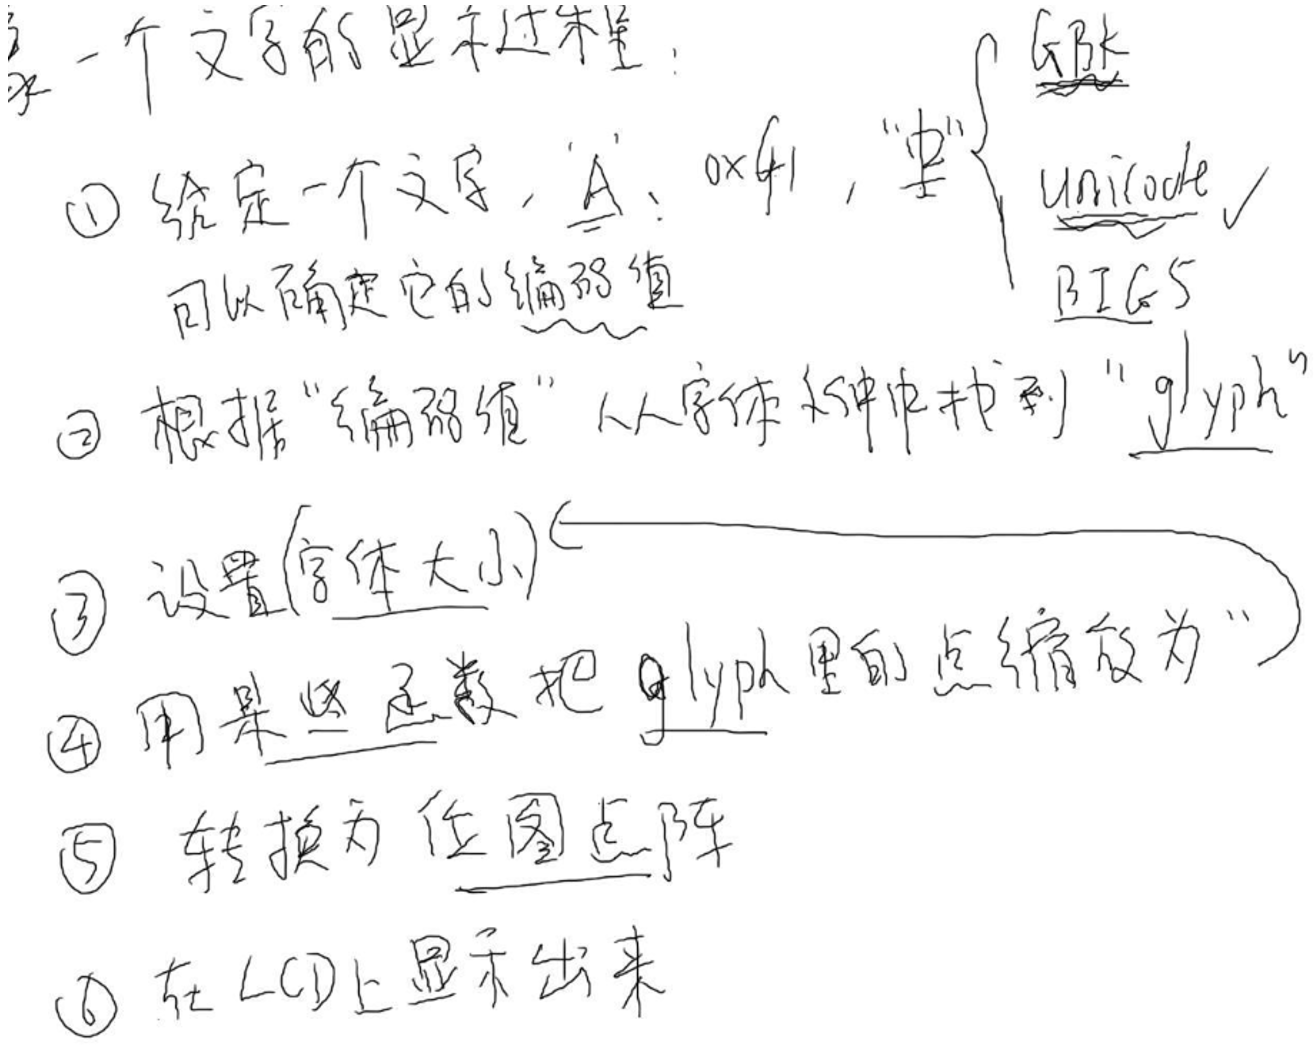 一个文字的显示过程:
① 给定一个文字, 'A', 0x41, "中" { GBK
unicode ✓
BIG5
可以确定它的编码值
② 根据"编码值" 从字体文件中找到 "glyph"
③ 设置(字体大小)
④ 用某些函数把 glyph 里的点缩放为"
⑤ 转换为位图点阵
⑥ 在LCD上显示出来